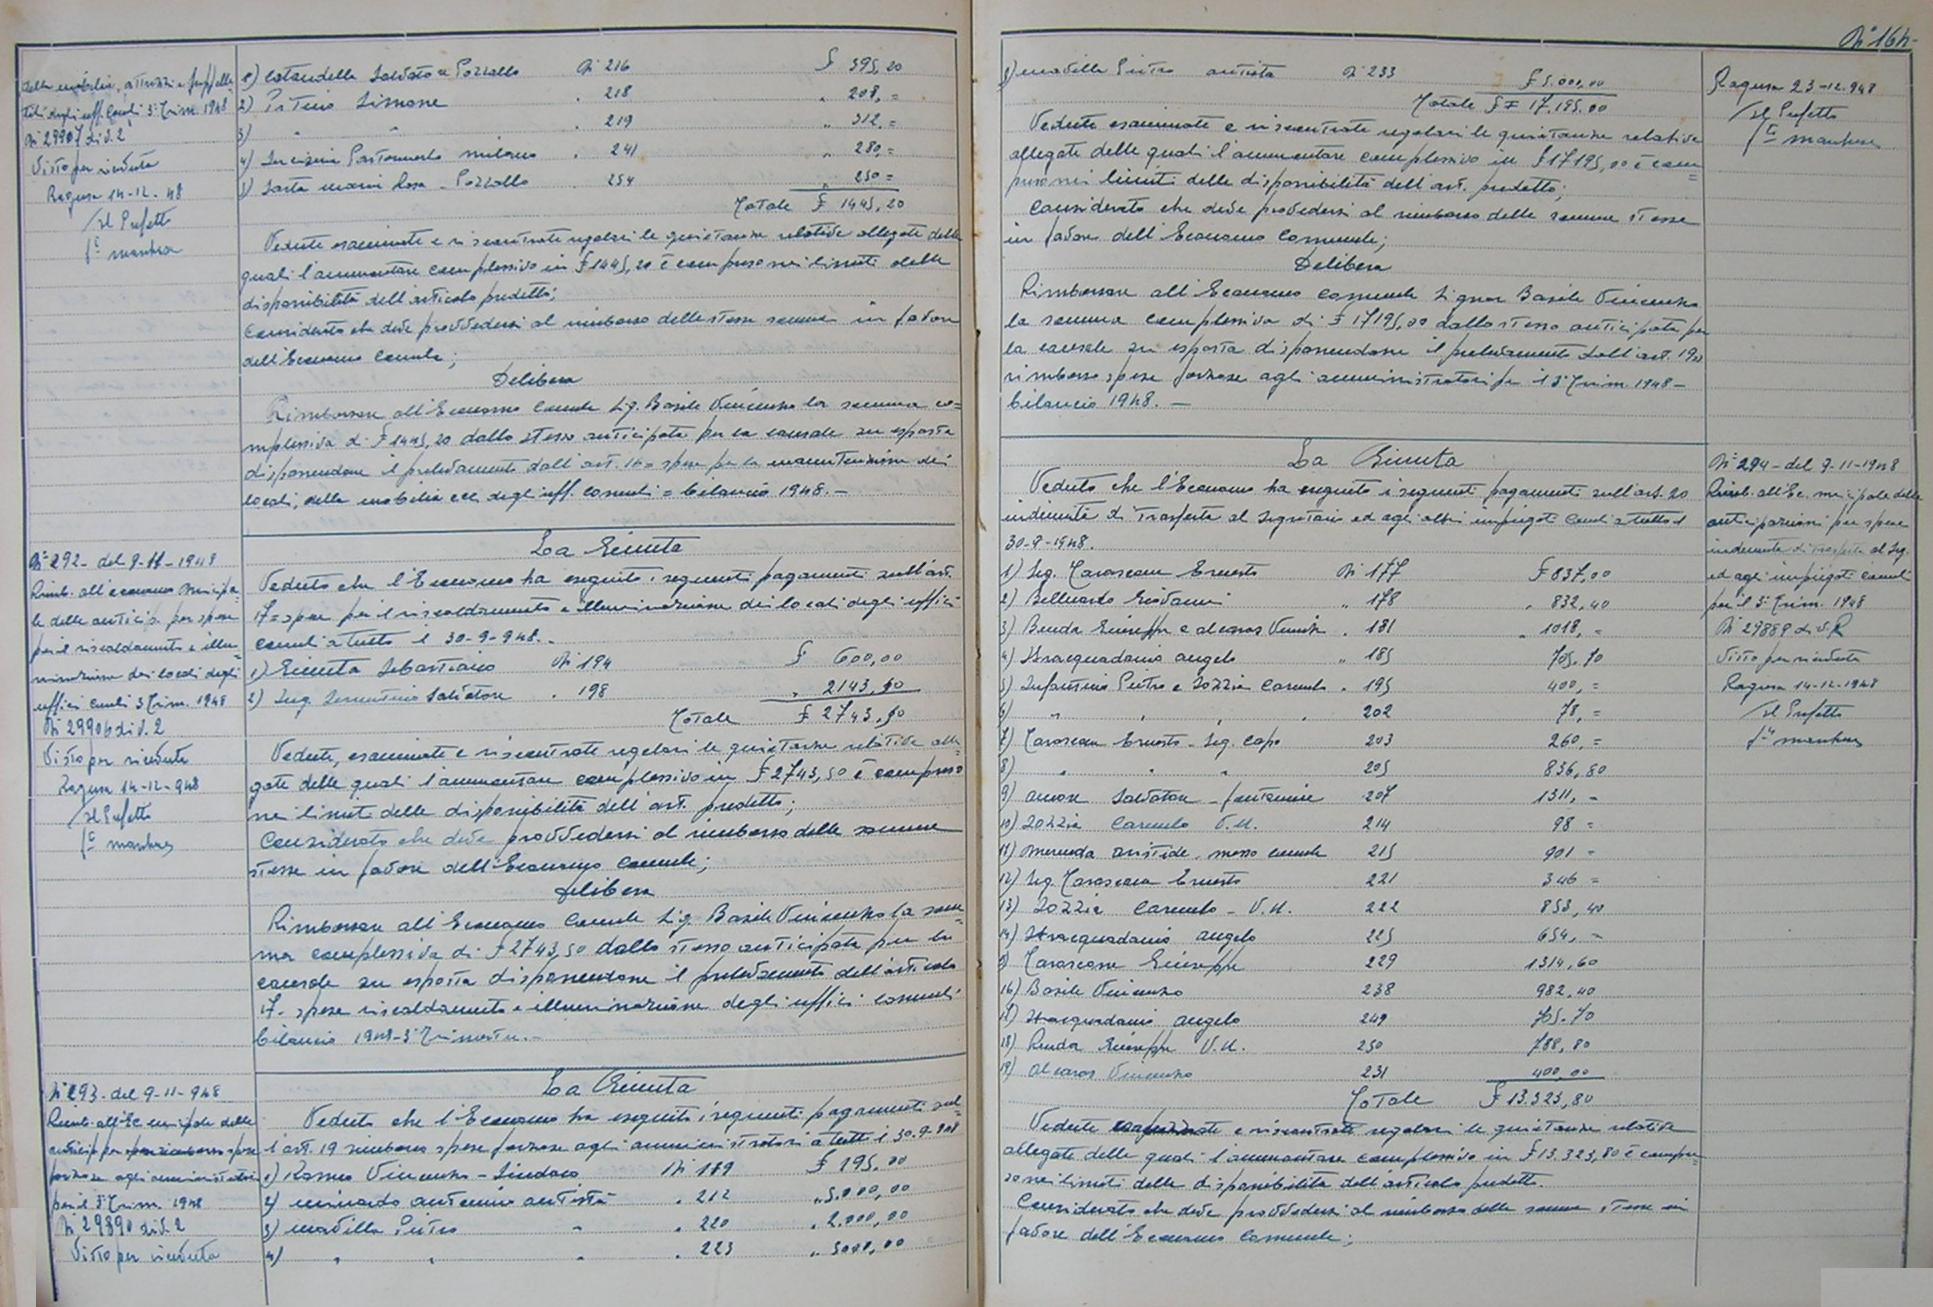 della mobilia, attrezzi e suppellet
tili degli uff. Comli 3° Trim. 1948
N° 29907 di d. 2
Visto per ricevuta
Ragusa 14-12-48
Il Prefetto
1) Cataudella Salvatore Pozzallo N° 216 £ 395,20
2) Simone . 218 „ 208, =
3) „ „ . 219 „ 312, =
4) milano . 241 „ 280, =
5) Maria Rosa - Pozzallo . 254 „ 250 =
Totale £ 1445,20
Vedute esaminate e riscontrate regolari le quietanze relative allegate delle
quali l'ammontare complessivo in £ 1445,20 è compreso nei limiti delle
disponibilità dell'articolo predetto;
Considerato che deve provvedersi al rimborso delle stesse somme in favore
dell'Economo Comle;
Delibera
Rimborsare all'Economo Comle Sig. Basile Vincenzo la somma co=
mplessiva di £ 1445,20 dallo stesso anticipata per la causale su esposta
disponendone il prelevamento dall'art. 16 = spese per la manutenzione dei
locali, della mobilia ecc degli uff. comunli = bilancio 1948. -
N° 292 - del 9-11-1948
Rimb. all'economo Municipa=
le delle anticip. per spese
per il riscaldamento e illu=
minazione dei locali degli
uffici comli 3 Trim. 1948
N° 29906 di d. 2
Visto per ricevuta
Ragusa 14-12-948
Il Prefetto
La Giunta
Veduto che l'Economo ha eseguito i seguenti pagamenti sull'art.
17 = spese per il riscaldamento e illuminazione dei locali degli uffici
comli a tutto il 30-9-948. -
1) Giunta Sebastiano N° 194 £ 600,00
2) Ing. Salvatore . 198 „ 2143,50
Totale £ 2743,50
Vedute, esaminate e riscontrate regolari le quietanze relative alle=
gate delle quali l'ammontare complessivo in £ 2743,50 è compreso
nei limiti delle disponibilità dell'art. predetto;
Considerato che deve provvedersi al rimborso delle somme
stesse in favore dell'Economo Comle;
Delibera
Rimborsare all'Economo Comle Sig. Basile Vincenzo la som=
ma complessiva di £ 2743,50 dallo stesso anticipata per la
causale su esposta disponendone il prelevamento dell'articolo
17 - spese riscaldamento e illuminazione degli uffici comunli
bilancio 1948 - 3° Trimestre. -
N° 293 - del 9-11-948
Rimb. all'Ec. municipale delle
anticip. per spese rimborso spese
forzose agli amministratori
per il 3° Trim. 1948
N° 29890 di d. 2
Visto per ricevuta
La Giunta
Veduto che l'Economo ha eseguito i seguenti pagamenti sul=
l'art. 19 rimborso spese forzose agli amministratori a tutto il 30-9-948
1) Vincenzo - Sindaco N° 189 £ 195,00
2) minardo antonino autista . 212 „ 5.000,00
3) modella Pietro „ . 220 „ 2.000,00
4) „ „ „ . 223 „ 5000,00
N° 164 -
5) modella Pietro autista N° 233 £ 5.000,00
Totale £ 17.195,00
Vedute esaminate e riscontrate regolari le quietanze relative
allegate delle quali l'ammontare complessivo in £ 17195,00 è com=
preso nei limiti delle disponibilità dell'art. predetto;
Considerato che deve provvedersi al rimborso delle somme stesse
in favore dell'Economo Comunale;
Delibera
Rimborsare all'Economo Comunale Signor Basile Vincenzo
la somma complessiva di £ 17195,00 dallo stesso anticipata per
la causale su esposta disponendone il prelevamento dall'art. 19
rimborso spese forzose agli amministratori per il 3° Trim. 1948 -
bilancio 1948. -
Ragusa 23-12-948
Il Prefetto
La Giunta
Veduto che l'Economo ha eseguito i seguenti pagamenti sull'art. 20
indennità di Trasferta al Segretario ed agli altri impiegati Comli a tutto il
30-9-1948.
1) Sig. Ernesto N° 177 £ 837,00
2) Belluardo Giovanni „ 178 „ 832,40
3) Giuseppe e Vincenzo . 181 „ 1018, =
4) Stracquadanio angelo „ 185 705,70
5) Infantino Pietro e Iozzia Carmelo . 195 400, =
6) „ „ „ „ 202 78, =
7) Ernesto - Seg. Capo 203 260, =
8) „ „ „ 205 836,80
9) amore Salvatore - fontaniere 207 1311, -
10) Iozzia Carmelo V.U. 214 98 =
11) aristide - messo comle 215 901 =
12) Sig. Ernesto 221 346 =
13) Iozzia Carmelo - V.U. 222 853,40
14) Stracquadanio angelo 225 654, -
15) Giuseppe 229 1314,60
16) Basile Vincenzo 238 982,40
17) Stracquadanio angelo 249 705,70
18) Giuseppe V.U. 250 788,80
19) Vincenzo 231 400,00
Totale £ 13.323,80
Vedute esaminate e riscontrate regolari le quietanze relative
allegate delle quali l'ammontare complessivo in £ 13.323,80 è compre=
so nei limiti delle disponibilità dell'articolo predetto.
Considerato che deve provvedersi al rimborso delle somme stesse in
favore dell'Economo Comunale;
N° 294 - del 9-11-1948
Rimb. all'Ec. municipale delle
anticipazioni per spese
indennità di trasferta al Seg.
ed agli impiegati comli
per il 3° Trim. 1948
N° 29889 di d. R
Visto per ricevuta
Ragusa 14-12-1948
Il Prefetto